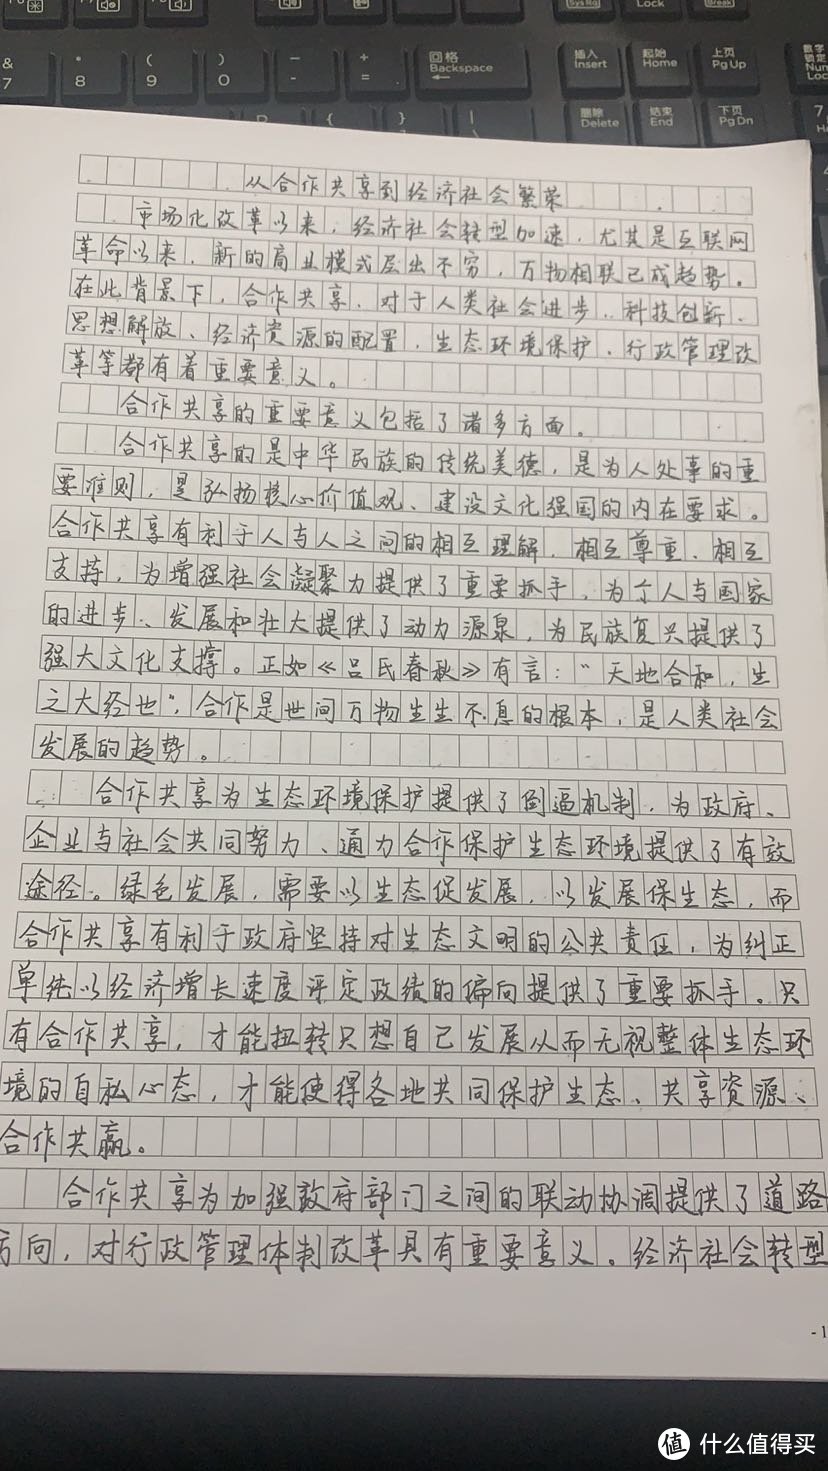 & 7
* 8
( 9
) 0
- -
+ =
回格 Backspace
Sys Rq
Lock
Break
插入 Insert
起始 Home
上页 PgUp
数字
锁定
Num
Loc
{
}
|
删除 Delete
结束 End
下页 PgDn
7
从合作共享到经济社会繁荣
市场化改革以来，经济社会转型加速，尤其是互联网
革命以来，新的商业模式层出不穷，万物相联已成趋势。
在此背景下，合作共享，对于人类社会进步、科技创新、
思想解放、经济资源的配置，生态环境保护、行政管理改
革等都有着重要意义。
合作共享的重要意义包括了诸多方面。
合作共享的是中华民族的传统美德，是为人处事的重
要准则，是弘扬核心价值观、建设文化强国的内在要求。
合作共享有利于人与人之间的相互理解，相互尊重、相互
支持，为增强社会凝聚力提供了重要抓手，为个人与国家
的进步、发展和壮大提供了动力源泉，为民族复兴提供了
强大文化支撑。正如《吕氏春秋》有言：“天地合和，生
之大经也”，合作是世间万物生生不息的根本，是人类社会
发展的趋势。
合作共享为生态环境保护提供了倒逼机制，为政府、
企业与社会共同努力、通力合作保护生态环境提供了有效
途径。绿色发展，需要以生态促发展，以发展保生态，而
合作共享有利于政府坚持对生态文明的公共责任，为纠正
单纯以经济增长速度评定政绩的偏向提供了重要抓手。只
有合作共享，才能扭转只想自己发展从而无视整体生态环
境的自私心态，才能使得各地共同保护生态、共享资源、
合作共赢。
合作共享为加强政府部门之间的联动协调提供了道路
方向，对行政管理体制改革具有重要意义。经济社会转型
- 1
值 什么值得买